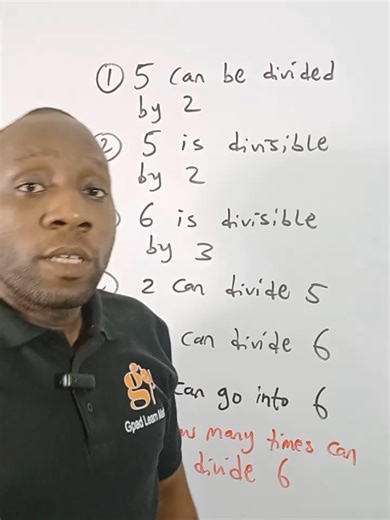 ① 5 can be divided
by 2
② 5 is divisible
by 2
6 is divisible
by 3
2 can divide 5
can divide 6
can go into 6
many times can
divide 6
Gpad Learn